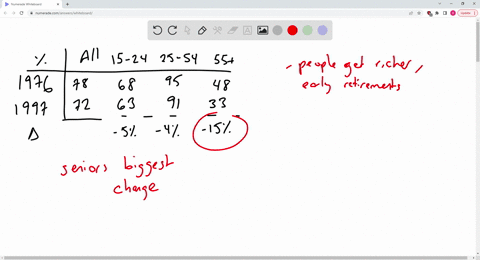 Numerade Whiteboard
numerade.com/answers/whiteboard/
% All 15-24 25-54 55+
1976 78 68 95 48
1997 72 63 91 33
Δ -5% -4% -15%
seniors biggest
change
- people get richer /
early retirements